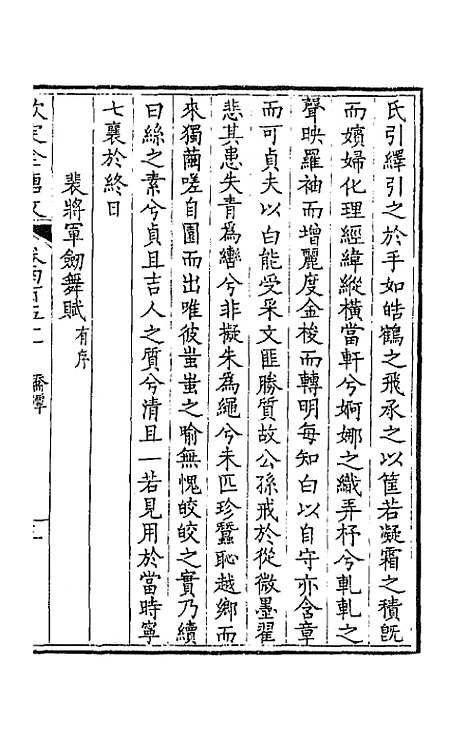 氏引繹引之於手如皓鶴之飛承之以筐若凝霜之積旣
而嬪婦化理經緯縱橫當軒兮婀娜之織弄杼兮軋軋之
聲映羅袖而增麗度金梭而轉明每知白以自守亦含章
而可貞夫以白能受采文匪勝質故公孫戒於從微墨翟
悲其患失青為巒兮非擬朱為繩兮未匹珍蠶恥越鄉而
來獨繭嗟自園而出唯彼蚩蚩之喻無愧皎皎之實乃續
曰絲之素兮貞且吉人之質兮清且一若見用於當時寧
七襄於終日
裴將軍劒舞賦有序
欽定全唐文 卷四百五十一 喬潭